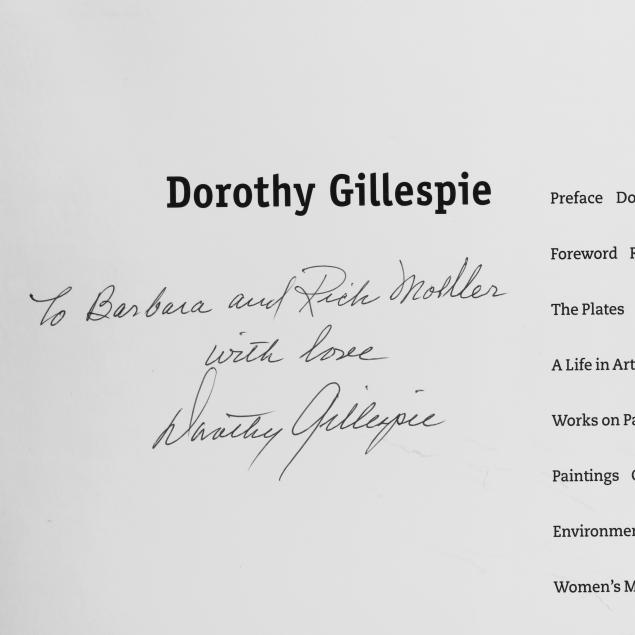 Dorothy Gillespie
To Barbara and Rich Moeller
with love
Dorothy Gillespie
Preface Do
Foreword F
The Plates
A Life in Art
Works on Pa
Paintings
Environmen
Women's M